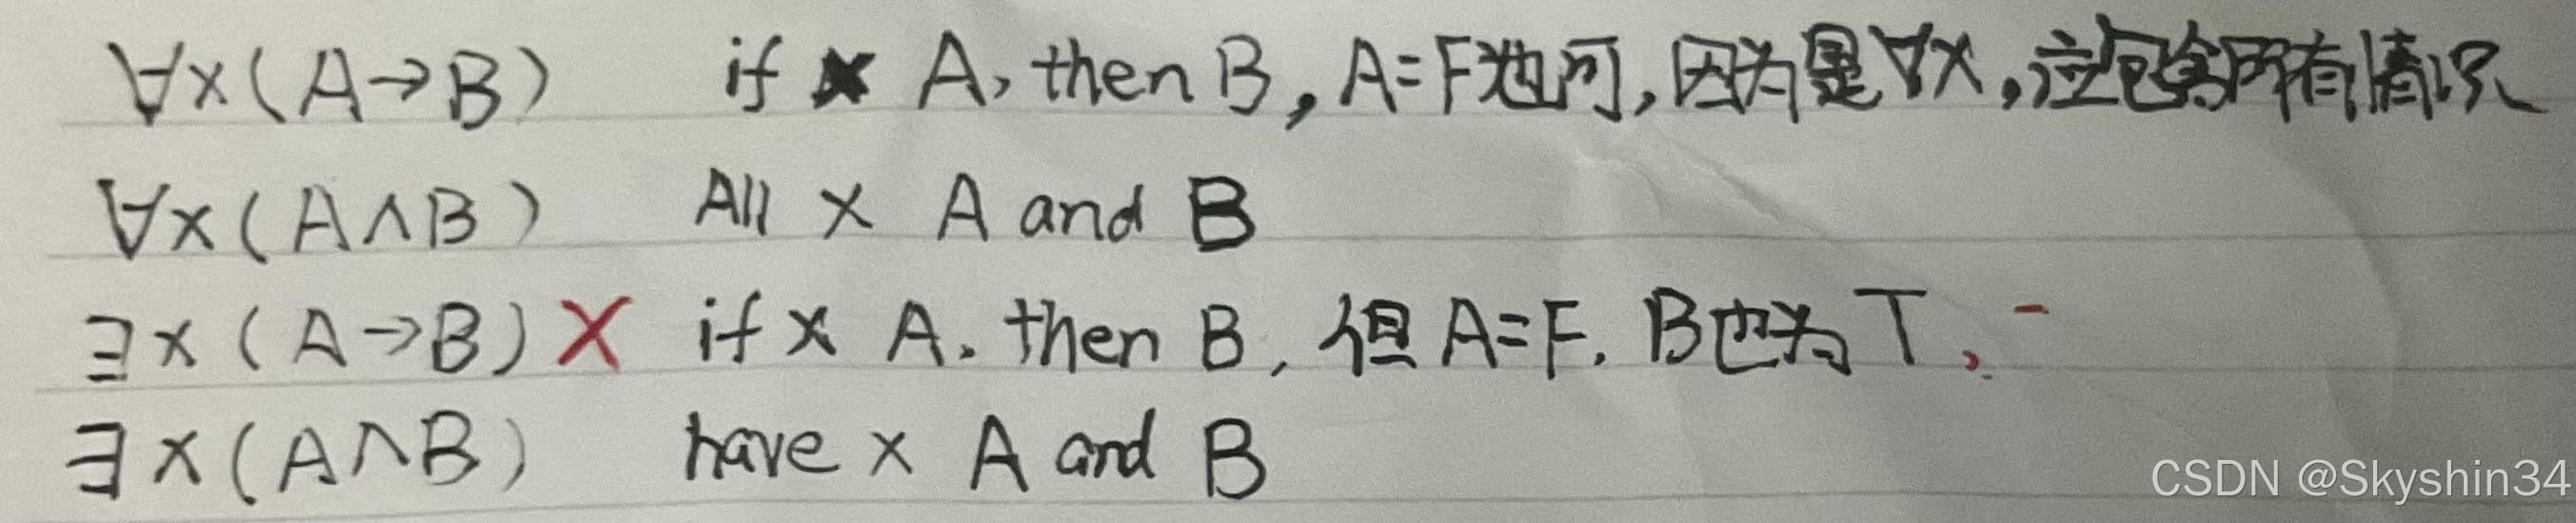 ∀x(A→B) if A, then B, A=F也可,因为是∀x,应包含所有情况
∀x(A∧B) All x A and B
∃x(A→B)X if x A. then B, 但A=F. B也为T,
∃x(A∧B) have x A and B
CSDN @Skyshin34